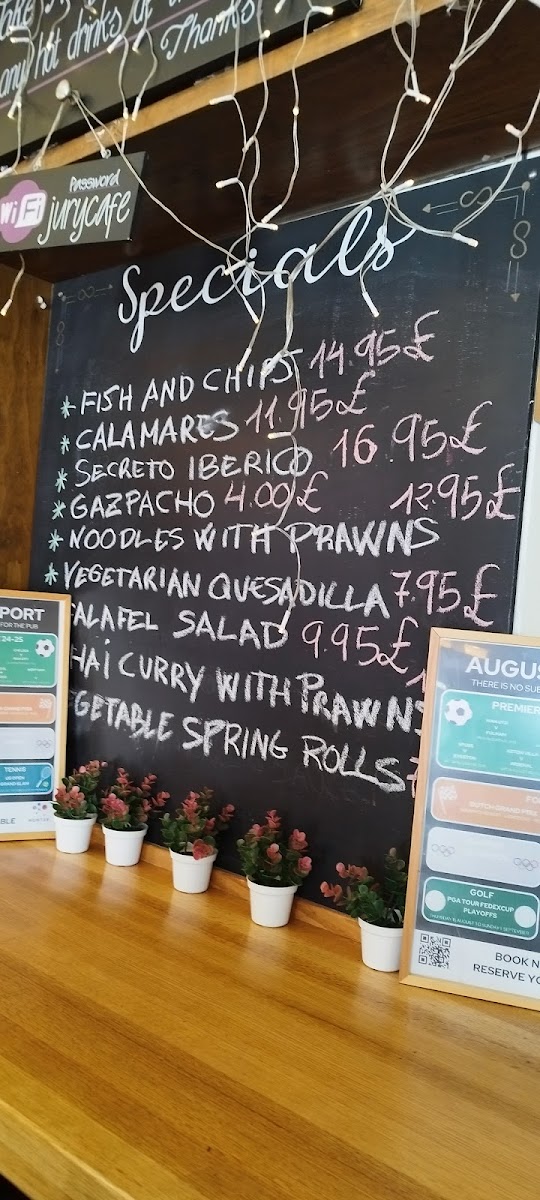 any hot drinks
Thanks
Password
WiFi jurycafe
Specials
FISH AND CHIPS 14.95£
CALAMARES 11.95£
SECRETO IBERICO 16.95£
GAZPACHO 4.00£ 12.95£
NOODLES WITH PRAWNS
VEGETARIAN QUESADILLA 7.95£
ALAFEL SALAD 9.95£
HAI CURRY WITH PRAWNS
GETABLE SPRING ROLLS 7
PORT
FOR THE PUB
24-25
TENNIS
BLE
AUGUS
THERE IS NO SUB
PREMIER
FO
DUTCH GRAND PRIX
GOLF
PGA TOUR FEDEXCUP
PLAYOFFS
BOOK N
RESERVE YO